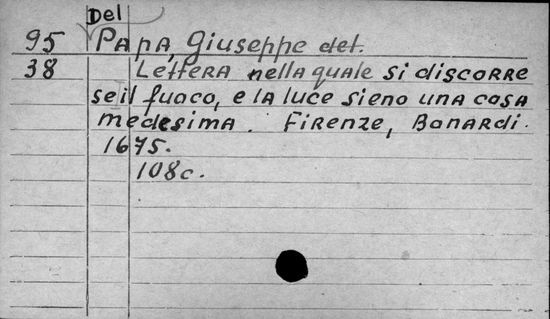 Del
95 Papa, Giuseppe det.
38 Lettera nella quale si discorre
se il fuoco, e la luce sieno una cosa
medesima. Firenze, Bonardi.
1675.
108c.